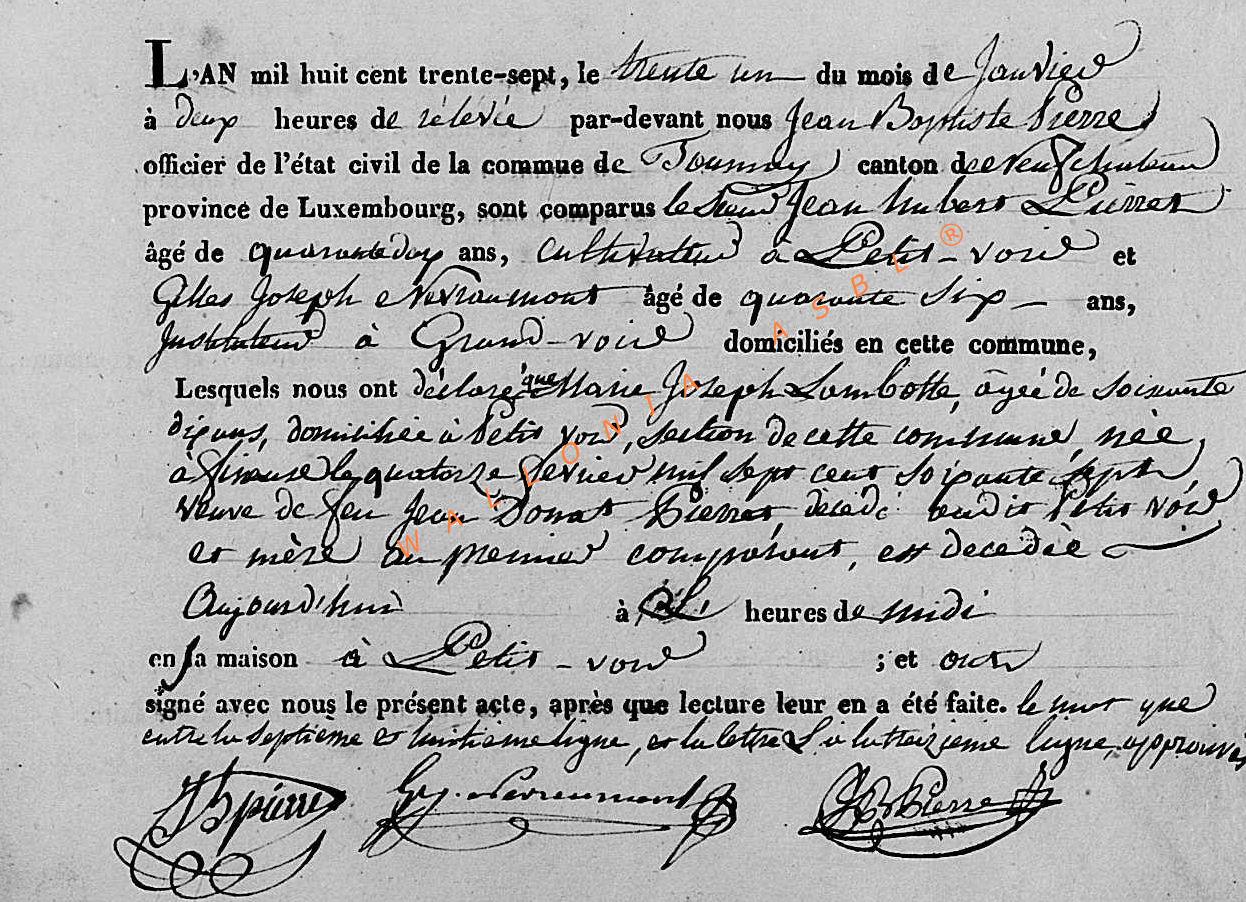 L'AN mil huit cent trente-sept, le trente un du mois de Janvier
à deux heures de rélévée par-devant nous Jean Baptiste Pierre
officier de l'état civil de la commue de Tournay canton de Neufchateau
province de Luxembourg, sont comparus le Sieur Jean hubert Pierret
âgé de quarante deux ans, cultivateur à Petit-voir et
Gilles Joseph Nevraumont âgé de quarante six ans,
Instituteur à Grand-voir domiciliés en cette commune,
Lesquels nous ont déclaré que Marie Joseph Lambotte, âgée de soixante
dix ans, domiciliée à Petit voir, section de cette commune, née,
à le quatorze fevrier mil sept cent soixante sept
veuve de feu Jean Donat Pierret, décédé audit Petit voir
et mère au premier comparant, est decedée
Aujourd'hui à heures de midi
en sa maison à Petit-voir ; et ont
signé avec nous le présent acte, après que lecture leur en a été faite. le mot que
entre la septième et huitième ligne, et la lettre S à la treizième ligne, approuvés
JhPierret G. J. Nevraumont JB Pierre
WALLONIA ASBL ®